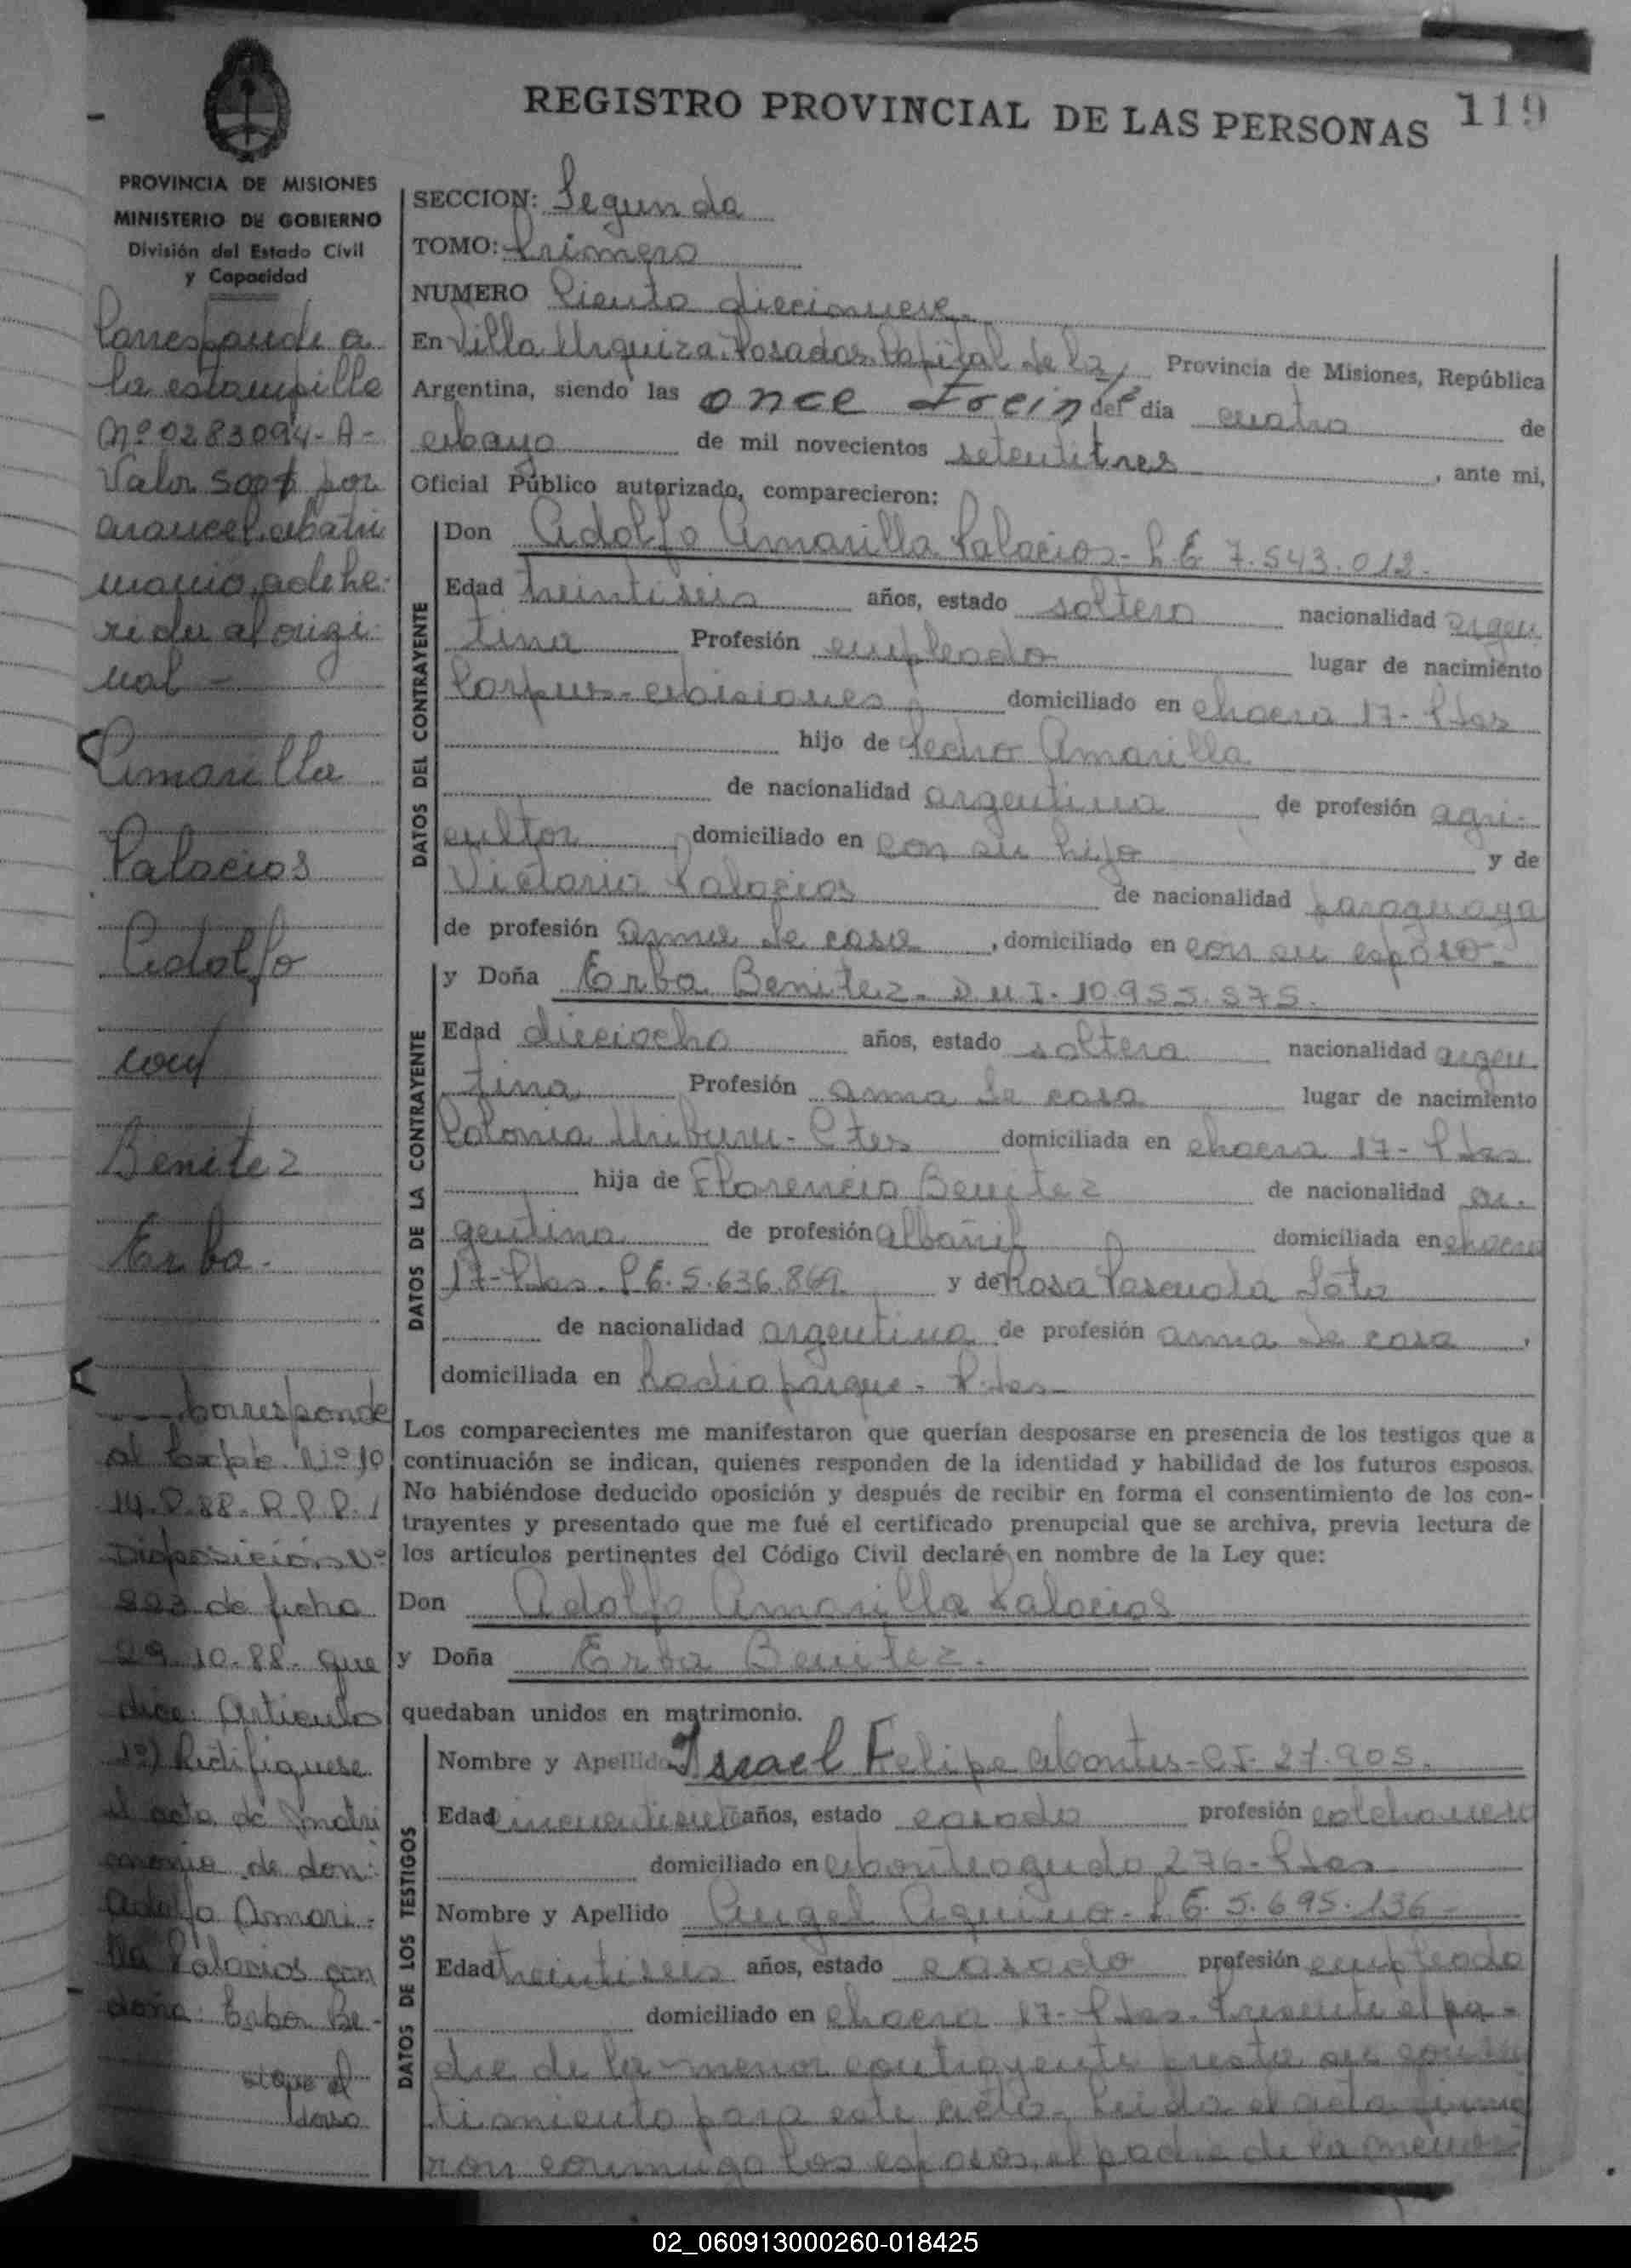 REGISTRO PROVINCIAL DE LAS PERSONAS 119
PROVINCIA DE MISIONES
MINISTERIO DE GOBIERNO
División del Estado Civil
y Capacidad
Corresponde a
la estampilla
Nº 0283094-A-
Valor 500$ por
arancel matri
monio, adhe
rida al origi
nal -
Amarilla
Palacios
Adolfo
con
Benitez
Erba.
Corresponde
al Expte Nº 10
14-R-88-R.P.P./
Disposición Nº
893 de fecha
29-10-88- que
dice: Articulo
1º) Rectifiquese
el acta de matri
monio de don:
Adolfo Amari-
lla Palacios con
doña: Erba Be-
sigue al
dorso
SECCION: Segunda
TOMO: Primero
NUMERO Ciento diecinueve.
En Villa Urquiza Posadas Capital de la Provincia de Misiones, República
Argentina, siendo las once y trein del día cuatro de
Mayo de mil novecientos setentitres, ante mi,
Oficial Público autorizado, comparecieron:
DATOS DEL CONTRAYENTE
Don Adolfo Amarilla Palacios- L E 7.543.012.
Edad treintiseis años, estado soltero nacionalidad argen
tina Profesión empleado lugar de nacimiento
Corpus-Misiones domiciliado en chacra 17- Pdas
hijo de Pedro Amarilla
de nacionalidad argentina de profesión agri-
cultor domiciliado en con su hijo y de
Victoria Palacios de nacionalidad paraguaya
de profesión ama de casa, domiciliado en con su esposo-
DATOS DE LA CONTRAYENTE
y Doña Erba Benitez- D.N.I. 10.955.375.
Edad dieciocho años, estado soltera nacionalidad argen
tina Profesión ama de casa lugar de nacimiento
Colonia Uriburu- Ctes domiciliada en chacra 17- Pdas
hija de Florencio Benitez de nacionalidad ar-
gentina de profesión albañil domiciliada en chacra
17-Pdas. L E. 5.636.869 y de Rosa Pascuala Soto
de nacionalidad argentina de profesión ama de casa,
domiciliada en Radioparque- Pdas
Los comparecientes me manifestaron que querían desposarse en presencia de los testigos que a
continuación se indican, quienes responden de la identidad y habilidad de los futuros esposos.
No habiéndose deducido oposición y después de recibir en forma el consentimiento de los con-
trayentes y presentado que me fué el certificado prenupcial que se archiva, previa lectura de
los artículos pertinentes del Código Civil declaré en nombre de la Ley que:
Don Adolfo Amarilla Palacios
y Doña Erba Benitez.
quedaban unidos en matrimonio.
DATOS DE LOS TESTIGOS
Nombre y Apellido Israel Felipe Montes-C I- 27.905.
Edad cincuentisiete años, estado casado profesión colchonero
domiciliado en Monteagudo 276- Pdas
Nombre y Apellido Angel Aquino- L E. 5.695.136-
Edad treintiseis años, estado casado profesión empleado
domiciliado en chacra 17- Pdas. Presente el pa-
dre de la menor contrayente presta su consen
timiento para este acto- Leida el acta firma
ron conmigo los esposos, el padre de la menor
02_060913000260-018425